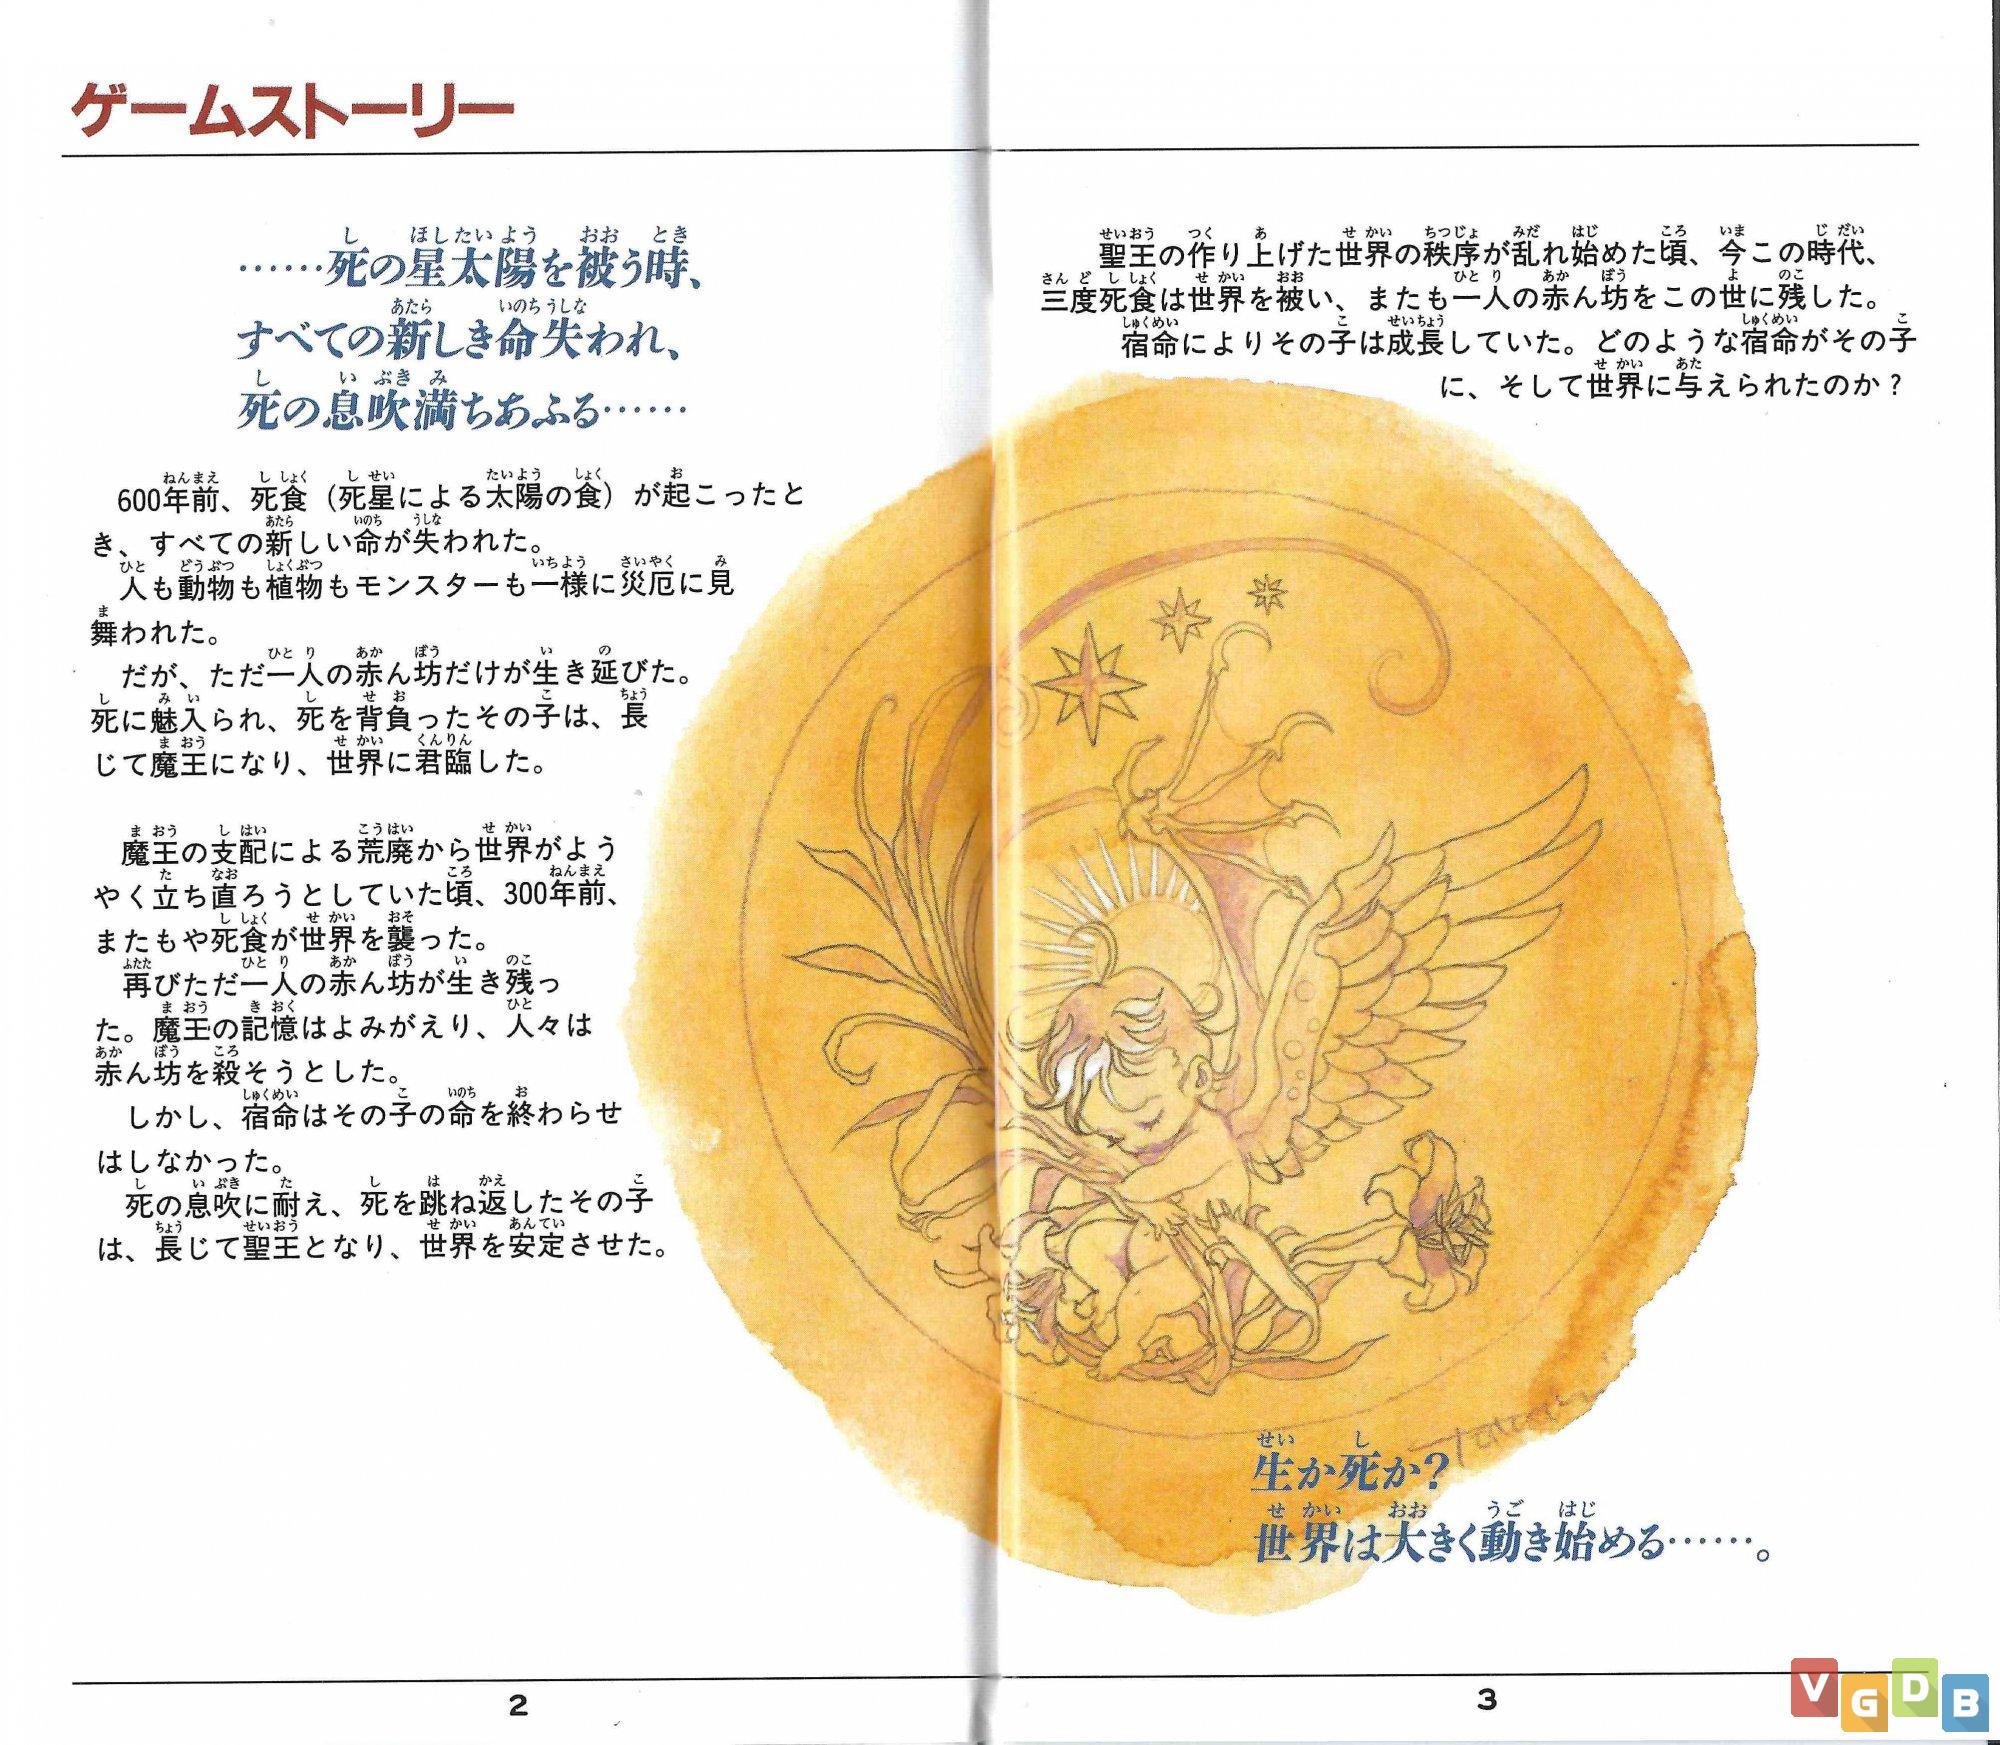 ゲームストーリー
……死の星太陽を被う時、
すべての新しき命失われ、
死の息吹満ちあふる……
600年前、死食（死星による太陽の食）が起こったと
き、すべての新しい命が失われた。
人も動物も植物もモンスターも一様に災厄に見
舞われた。
だが、ただ一人の赤ん坊だけが生き延びた。
死に魅入られ、死を背負ったその子は、長
じて魔王になり、世界に君臨した。
魔王の支配による荒廃から世界がよう
やく立ち直ろうとしていた頃、300年前、
またもや死食が世界を襲った。
再びただ一人の赤ん坊が生き残っ
た。魔王の記憶はよみがえり、人々は
赤ん坊を殺そうとした。
しかし、宿命はその子の命を終わらせ
はしなかった。
死の息吹に耐え、死を跳ね返したその子
は、長じて聖王となり、世界を安定させた。
2
聖王の作り上げた世界の秩序が乱れ始めた頃、今この時代、
三度死食は世界を被い、またも一人の赤ん坊をこの世に残した。
宿命によりその子は成長していた。どのような宿命がその子
に、そして世界に与えられたのか？
生か死か？
世界は大きく動き始める……。
3
VGDB